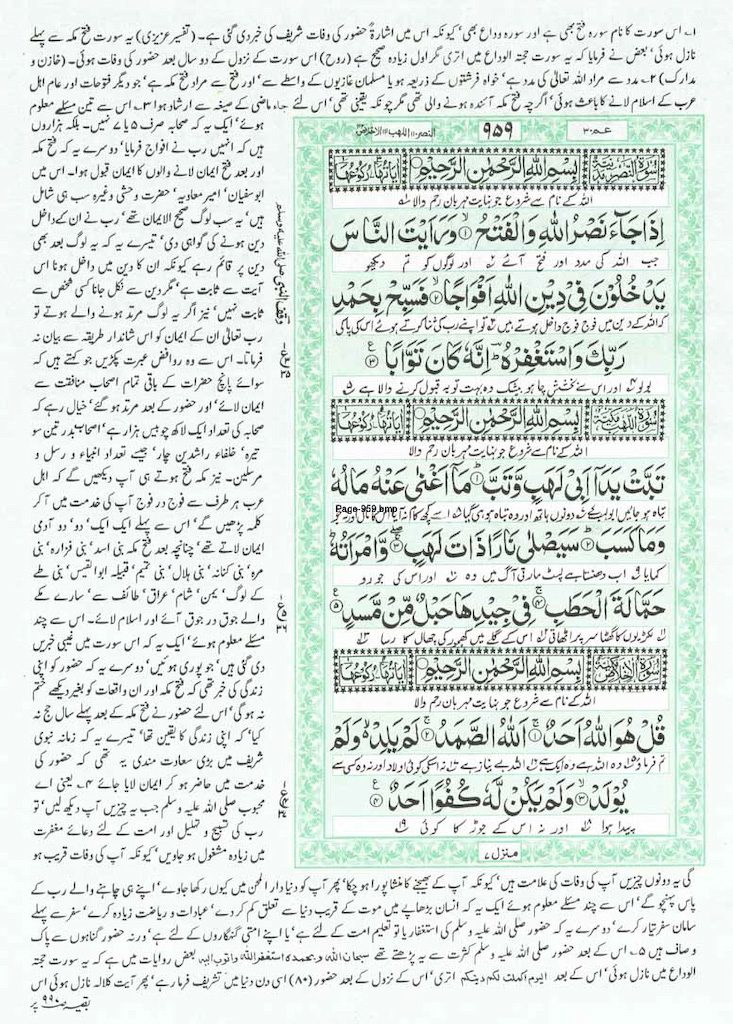 ۱۔ اس سورت کا نام سورہ فتح بھی ہے اور سورہ وداع بھی' کیونکہ اس میں اشارۃً حضور کی وفات شریف کی خبر دی گئی ہے۔ (تفسیر عزیزی) یہ سورت فتح مکہ سے پہلے
نازل ہوئی' بعض نے فرمایا کہ یہ سورت حجۃ الوداع میں اتری مگر اول زیادہ صحیح ہے (روح) اس سورت کے نزول کے دو سال بعد حضور کی وفات ہوئی۔ (خازن و
مدارک) ۲۔ مدد سے مراد اللہ تعالیٰ کی مدد ہے' خواہ فرشتوں کے ذریعہ ہو یا مسلمان غازیوں کے واسطے سے' اور فتح سے مراد فتح مکہ ہے' جو دیگر فتوحات اور عام اہل
عرب کے اسلام لانے کا باعث ہوئی' اگرچہ فتح مکہ آئندہ ہونے والی تھی مگر چونکہ یقینی تھی' اس لئے جاء ماضی کے صیغہ سے ارشاد ہوا ۳۔ اس سے تین مسئلے معلوم
ہوئے' ایک یہ کہ صحابہ صرف ۵ یا ۷ نہیں۔ بلکہ ہزاروں
ہیں کہ انہیں رب نے افواج فرمایا' دوسرے یہ کہ فتح مکہ
اور بعد فتح ایمان لانے والوں کا ایمان قبول ہوا۔ اس میں
ابوسفیان' امیر معاویہ' حضرت وحشی وغیرہ سب ہی شامل
ہیں' یہ سب لوگ صحیح الایمان تھے' رب نے ان کے داخل
دین ہونے کی گواہی دی' تیسرے یہ کہ یہ لوگ بعد بھی
دین پر قائم رہے کیونکہ ان کا دین میں داخل ہونا اس
آیت سے ثابت ہے' مگر دین سے نکل جانا کسی شخص سے
ثابت نہیں' نیز اگر یہ لوگ مرتد ہونے والے ہوتے تو
رب تعالیٰ ان کے ایمان کو اس شاندار طریقہ سے بیان نہ
فرماتا۔ اس سے وہ روافض عبرت پکڑیں جو کہتے ہیں کہ
سوائے پانچ حضرات کے باقی تمام اصحاب منافقت سے
ایمان لائے' اور حضور کے بعد مرتد ہو گئے' خیال رہے کہ
صحابہ کی تعداد ایک لاکھ چوبیس ہزار ہے' اصحاب بدر تین سو
تیرہ' خلفاء راشدین چار' جیسے تعداد انبیاء و رسل و
مرسلین۔ نیز مکہ فتح ہوتے ہی آپ دیکھیں گے کہ اہل
عرب ہر طرف سے فوج در فوج آپ کی خدمت میں آ کر
کلمہ پڑھیں گے' اس سے پہلے ایک ایک' دو' دو آدمی
ایمان لاتے تھے' چنانچہ بعد فتح مکہ بنی اسد' بنی فزارہ' بنی
مرہ' بنی کنانہ' بنی ہلال' بنی تمیم' قبیلہ ابوالقیس' بنی طے
کے لوگ' یمن' شام' عراق' طائف سے' سارے مکے
والے جوق در جوق آئے اور اسلام لائے۔ اس سے چند
مسئلے معلوم ہوئے' ایک یہ کہ اس سورت میں غیبی خبریں
دی گئی ہیں' جو پوری ہوئیں' دوسرے یہ کہ حضور کو اپنی
زندگی کی خبر تھی کہ فتح مکہ اور ان واقعات کو بغیر دیکھے ختم
نہ ہو گی' اس لئے حضور نے فتح مکہ کے بعد پہلے سال حج نہ
کیا' کہ اپنی زندگی کا یقین تھا' تیسرے یہ کہ زمانہ نبوی
شریف میں بڑی سعادت مندی یہ تھی کہ حضور کی
خدمت میں حاضر ہو کر ایمان لایا جائے ۴۔ یعنی اے
محبوب صلی اللہ علیہ وسلم جب یہ چیزیں آپ دیکھ لیں' تو
رب کی تسبیح و تہلیل اور امت کے لئے دعائے مغفرت
میں زیادہ مشغول ہو جاویں' کیونکہ آپ کی وفات قریب ہو
وقف النبی صلی اللہ علیہ وسلم
عم ۳۰
۹۵۹
النصر ۱۱۰ اللھب ۱۱۱ الاخلاص ۱۱۲
سُوْرَةُ النَّصْرِ مَدَنِيَّةٌ بِسْمِ اللهِ الرَّحْمٰنِ الرَّحِيْمِ اٰيَاتُهَا ٣ رُكُوْعُهَا ١
اللہ کے نام سے شروع جو نہایت مہربان رحم والا ہے
اِذَا جَآءَ نَصْرُ اللهِ وَالْفَتْحُ ۙ۱ وَرَاَيْتَ النَّاسَ
جب اللہ کی مدد اور فتح آئے اور لوگوں کو تم دیکھو
يَدْخُلُوْنَ فِيْ دِيْنِ اللهِ اَفْوَاجًا ۙ۲ فَسَبِّحْ بِحَمْدِ
کہ اللہ کے دین میں فوج فوج داخل ہوتے ہیں تو اپنے رب کی ثنا کرتے ہوئے اس کی پاکی
رَبِّكَ وَاسْتَغْفِرْهُ ؕ اِنَّهٗ كَانَ تَوَّابًا ۳
بولو اور اس سے بخشش چاہو بیشک وہ بہت توبہ قبول کرنے والا ہے
سُوْرَةُ اللَّهَبِ مَكِّيَّةٌ بِسْمِ اللهِ الرَّحْمٰنِ الرَّحِيْمِ اٰيَاتُهَا ٥ رُكُوْعُهَا ١
اللہ کے نام سے شروع جو نہایت مہربان رحم والا
تَبَّتْ يَدَاۤ اَبِيْ لَهَبٍ وَّتَبَّ ؕ۱ مَاۤ اَغْنٰى عَنْهُ مَالُهٗ
تباہ ہو جائیں ابولہب کے دونوں ہاتھ اور وہ تباہ ہو ہی گیا اسے کچھ کام نہ آیا اس کا مال اور نہ جو
Page-959.bmp
وَمَا كَسَبَ ؕ۲ سَيَصْلٰى نَارًا ذَاتَ لَهَبٍ ۚۖ۳ وَّامْرَاَتُهٗ ؕ
کمایا اب دھنستا ہے لپٹ مارتی آگ میں وہ اور اس کی جورو
حَمَّالَةَ الْحَطَبِ ۚ۴ فِيْ جِيْدِهَا حَبْلٌ مِّنْ مَّسَدٍ ۵
لکڑیوں کا گٹھا سر پر اٹھاتی اس کے گلے میں کھجور کی چھال کا رسا
سُوْرَةُ الْاِخْلَاصِ مَكِّيَّةٌ بِسْمِ اللهِ الرَّحْمٰنِ الرَّحِيْمِ اٰيَاتُهَا ٤ رُكُوْعُهَا ١
اللہ کے نام سے شروع جو نہایت مہربان رحم والا
قُلْ هُوَ اللهُ اَحَدٌ ۚ۱ اَللهُ الصَّمَدُ ۚ۲ لَمْ يَلِدْ ۙ۬ وَلَمْ
تم فرماؤ وہ اللہ ہے وہ ایک ہے اللہ بے نیاز ہے نہ اس کی کوئی اولاد اور نہ وہ کسی سے
يُوْلَدْ ۙ۳ وَلَمْ يَكُنْ لَّهٗ كُفُوًا اَحَدٌ ۴
پیدا ہوا اور نہ اس کے جوڑ کا کوئی
منزل ۷
گی یہ دونوں چیزیں آپ کی وفات کی علامت ہیں' کیونکہ آپ کے بھیجنے کا منشا پورا ہو چکا' پھر آپ کو دنیا دار المحن میں کیوں رکھا جاوے' اپنے ہی چاہنے والے رب کے
پاس پہنچو گے' اس سے چند مسئلے معلوم ہوئے ایک یہ کہ انسان بڑھاپے میں موت کے قریب دنیا سے تعلق کم کر دے' عبادات و ریاضت زیادہ کرے' سفر سے پہلے
سامان سفر تیار کرے' دوسرے یہ کہ حضور صلی اللہ علیہ وسلم کی استغفار یا تو تعلیم امت کے لئے ہے' یا اپنے امتی گنہگاروں کے لئے ہے' ورنہ حضور گناہوں سے پاک
و صاف ہیں ۵۔ اس کے بعد حضور صلی اللہ علیہ وسلم کثرت سے یہ پڑھتے تھے سبحان اللہ وبحمدہ استغفر اللہ واتوب الیہ بعض روایات میں ہے کہ یہ سورت حجۃ
الوداع میں نازل ہوئی' اس کے بعد الیوم اکملت لکم دینکم اتری' اس کے نزول کے بعد حضور (۸۰) اسی دن دنیا میں تشریف فرما رہے' پھر آیت کلالہ نازل ہوئی اس
بقیہ صفحہ ۹۹۰ پر